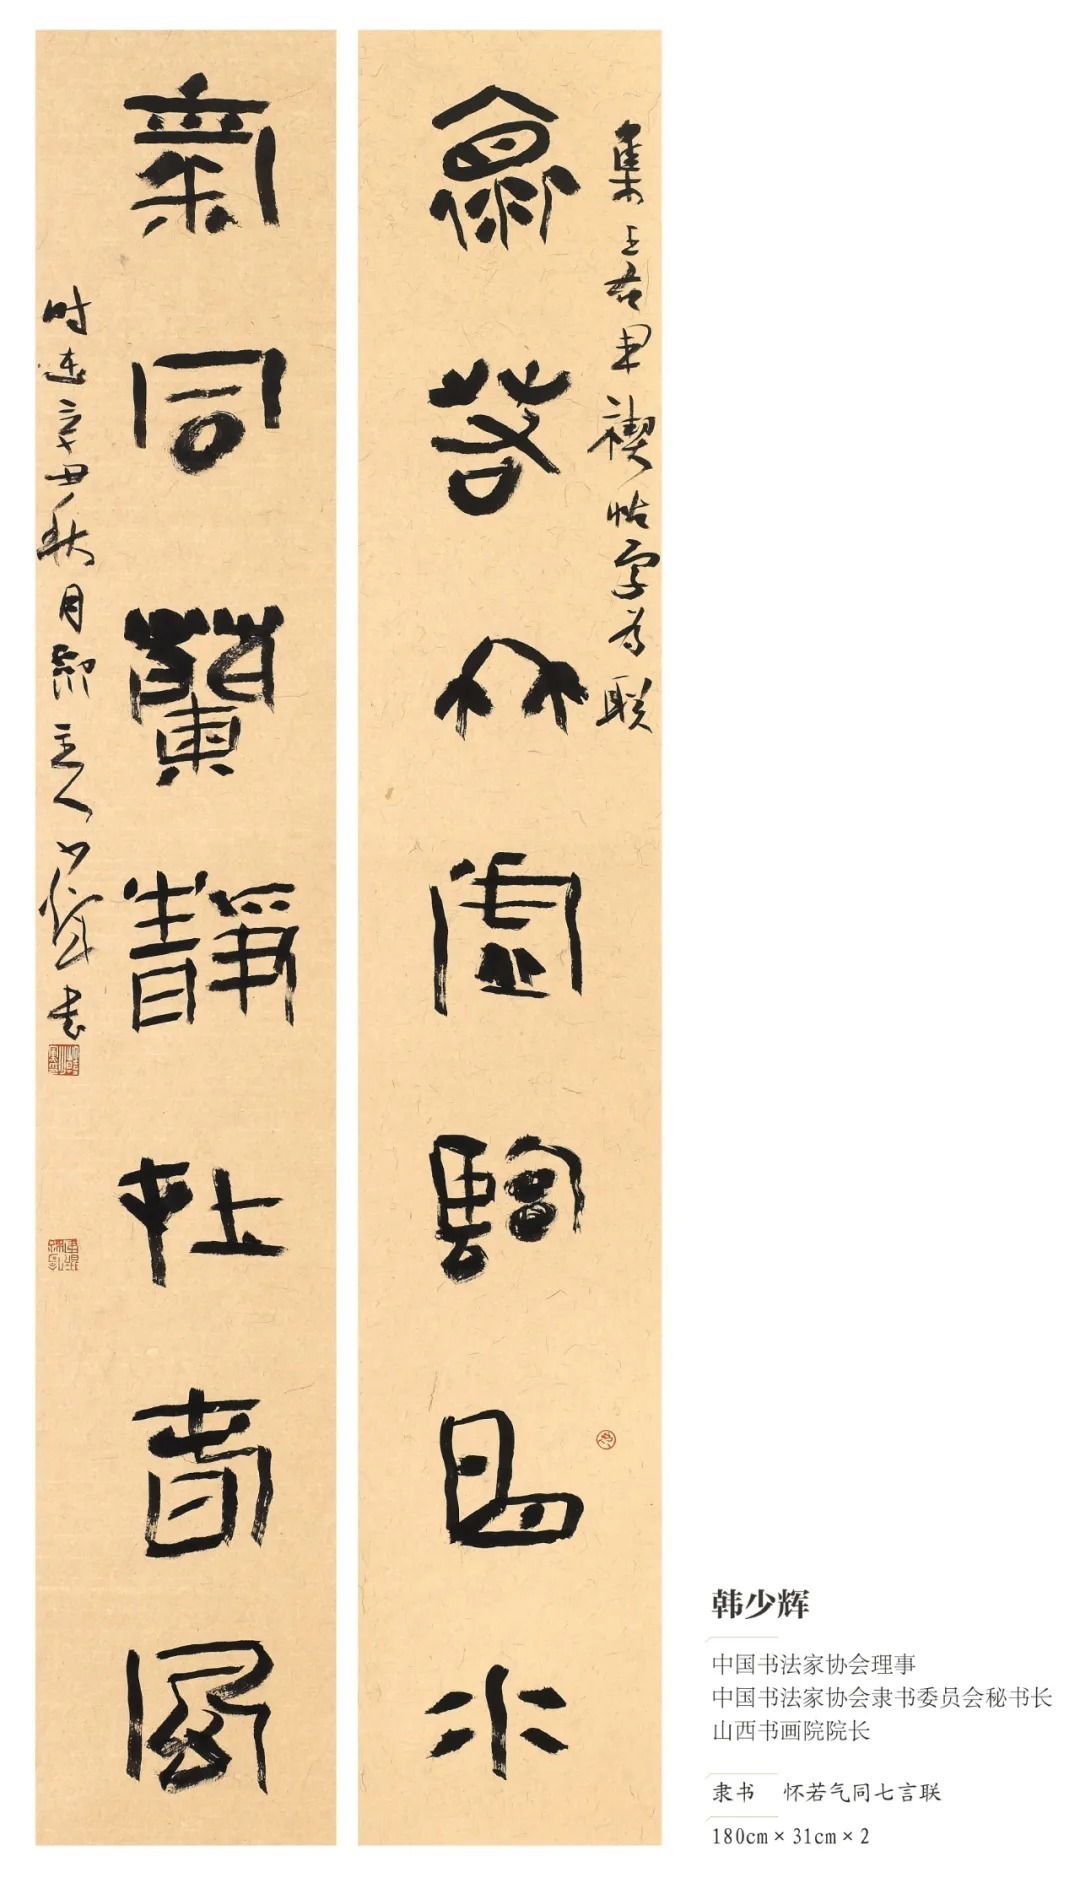 集王右军禊帖字为联
懷若竹虛臨曲水
氣同蘭靜在春風
时逢辛丑秋月主人少辉书
韩少辉
中国书法家协会理事
中国书法家协会隶书委员会秘书长
山西书画院院长
隶书 怀若气同七言联
180cm × 31cm × 2